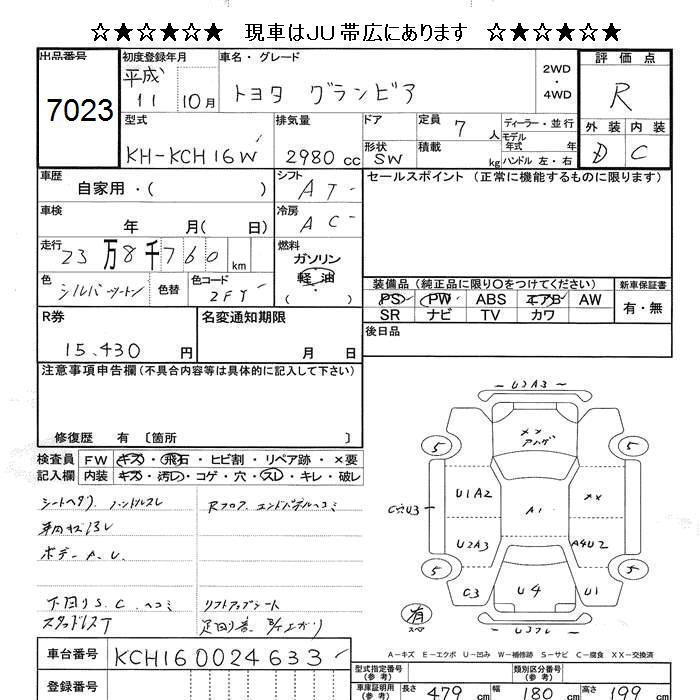 ☆★☆★☆★ 現車はJU帯広にあります ☆★☆★☆★
出品番号 初度登録年月 車名・グレード 評価点
7023 平成 11 10月 トヨタ グランビア 2WD・4WD R
型式 排気量 ドア 定員 7人 ディーラー・並行 外装 内装
KH-KCH16W 2980cc 形状 SW 積載 kg モデル年式 年 ハンドル 左・右 D C
車歴 自家用・( ) シフト AT セールスポイント (正常に機能するものに限ります)
車検 年 月( 日) 冷房 AC
走行 23万8千760km 燃料 ガソリン 軽油 ( )
色 シルバーツートン 色替 色コード 2FY
装備品 (純正品に限り○をつけてください) 新車保証書
PS PW ABS エアB AW 有・無
SR ナビ TV カワ
R券 名変通知期限 後日品
15.430円 月 日
注意事項申告欄(不具合内容等は具体的に記入して下さい)
修復歴 有 〔箇所 〕
検査員 FW キズ・飛石・ヒビ割・リペア跡・×要
記入欄 内装 キズ・汚レ・コゲ・穴・スレ・キレ・破レ
シートヘタリ ハンドルスレ
ボデーA.U.
下回りS.C.ヘコミ リフトアップシート
スタッドレスT
U2A3
××
アハゲ
5 5
U1A2 ××
A1
U2A3 A4U2
5 5
C3 U4 U1
有
スペア
A-キズ E-エクボ U-凹み W-補修跡 S-サビ C-腐食 XX-交換済
車台番号 KCH16 0024633
型式指定番号(参考) 類別区分番号(参考)
登録番号 車庫証明用(参考) 長さ 479cm 幅 180cm 高さ 199cm